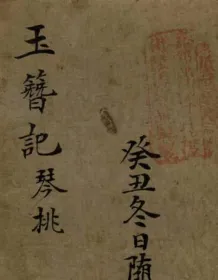 癸丑冬日随
玉簪記琴挑